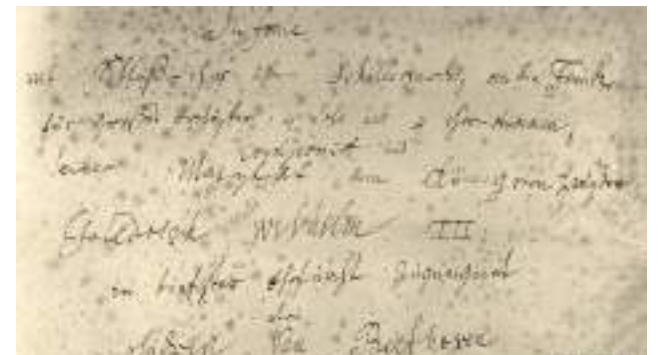 Sinfonie
mit Schluß-Chor über Schillers ode, an die Freude
für großes Orchester, 4 und 4 Chor-Stimmen,
componirt und
seiner Majestät dem König von Preußen
Friedrich Wilhelm III.
in tiefster Ehrfurcht zugeeignet
von
Ludwig van Beethoven